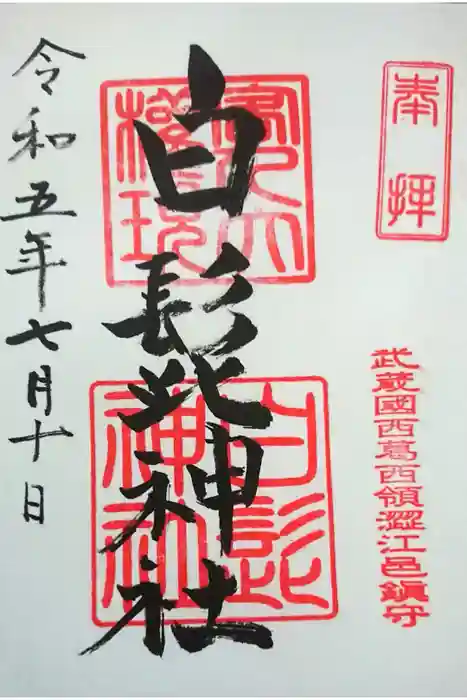 奉拝
武蔵國西葛西領澀江邑鎮守
白髭神社
權現
白髭
神社
令和五年七月十日